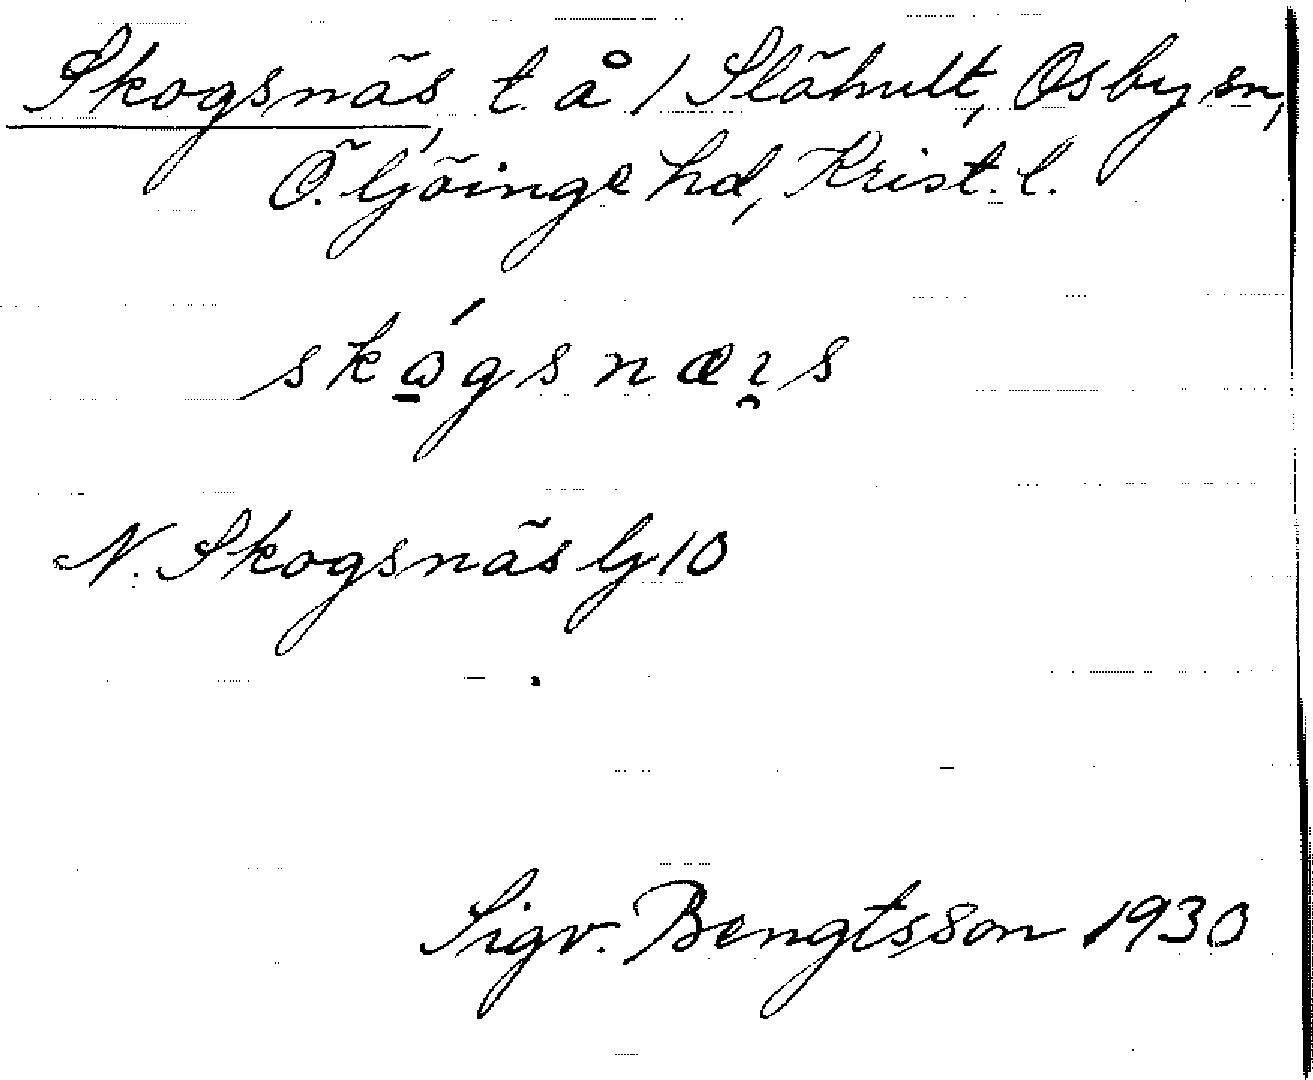 Skogsnäs, t. å 1 Slähult, Osby sn,
Ö. Göinge hd, Krist. l.
skǫ́gsnæı̯s
N. Skogsnäs G10
Sigv. Bengtsson 1930